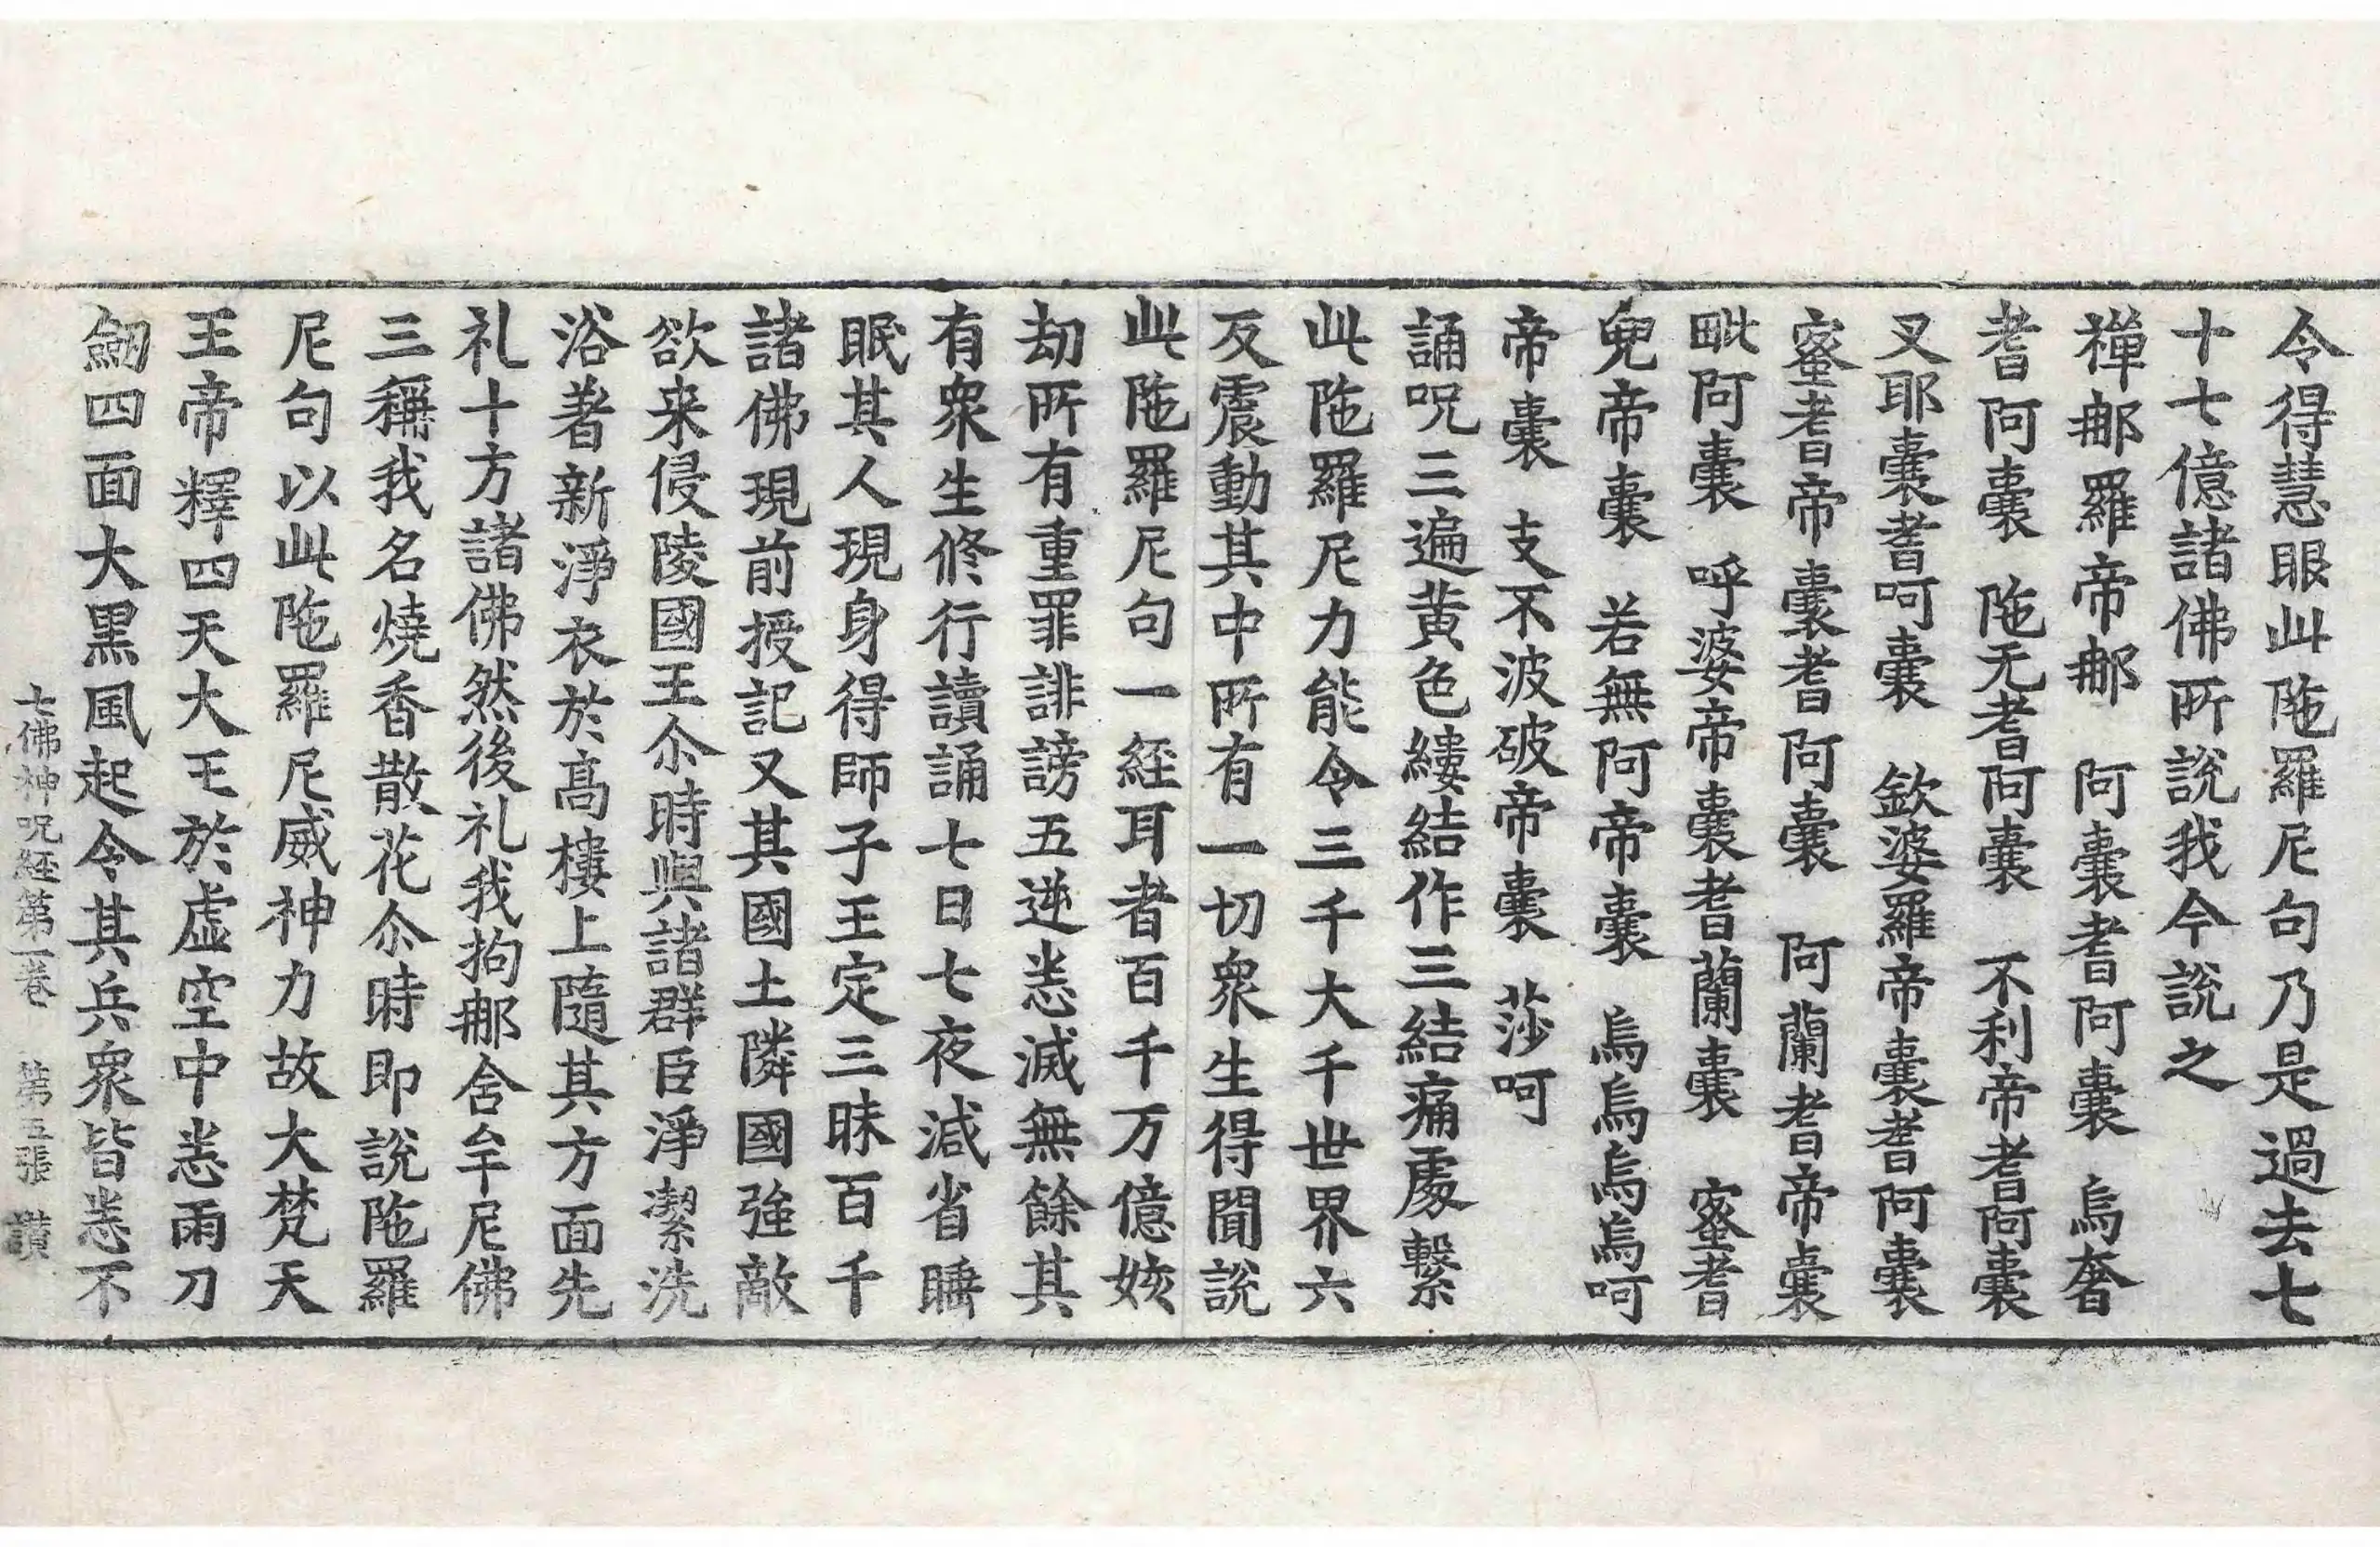 令得慧眼此陁羅尼句乃是過去七
十七億諸佛所說我今說之
禪𨚗羅帝𨚗 阿囊耆阿囊 烏奢
耆阿囊 陁无耆阿囊 不利帝耆阿囊
叉耶囊耆呵囊 欽婆羅帝囊耆阿囊
蜜耆帝囊耆阿囊 阿蘭耆帝囊
毗阿囊 呼婆帝囊耆蘭囊 蜜耆
兒帝囊 若無阿帝囊 烏烏烏烏呵
帝囊 支不波破帝囊 莎呵
誦呪三遍黃色縷結作三結痛處繫
此陁羅尼力能令三千大千世界六
反震動其中所有一切衆生得聞說
此陁羅尼句一経耳者百千万億姟
劫所有重罪誹謗五逆悉滅無餘其
有衆生修行讀誦七日七夜減省睡
眠其人現身得師子王定三昧百千
諸佛現前授記又其國土隣國強敵
欲来侵陵國王尒時與諸群臣淨潔洗
浴著新淨衣於高樓上隨其方面先
礼十方諸佛然後礼我拘𨚗舍牟尼佛
三稱我名燒香散花尒時即說陁羅
尼句以此陁羅尼威神力故大梵天
王帝釋四天大王於虛空中悉雨刀
劒四面大黑風起令其兵衆皆悉不
七佛神呪経第一卷 第五張 讃